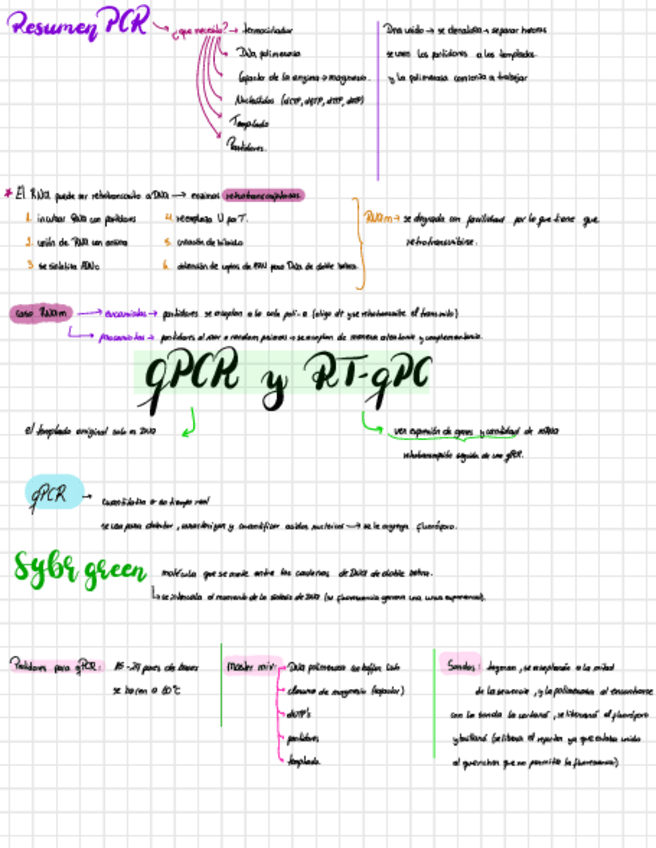 Resumen PCR → ¿que necesito? → termociclador
Dna polimerasa
Cofactor de la enzima → magnesio.
Nucleótidos (dCTP, dGTP, dTTP, dATP)
Templado
Partidores.
Dna unido → se denatura → separar hebras
se unen los partidores a los templados
y la polimerasa comienza a trabajar
* El RNA puede ser retrotranscrito a DNA → enzimas retrotranscriptasas
1. incubar RNA con partidores
2. unión de RNA con enzima
3. se sintetiza
4. reemplaza U por T.
5. creación de híbrido
6. obtención de copias de para DNA de doble hebra.
RNAm → se degrada con facilidad por lo que tiene que
retrotranscribirse.
caso RNAm → eucariotas → partidores se acoplan a la cola poli-a (oligo dt que retrotranscribe el transcrito)
procariotas → partidores al azar o random primers → se acoplan de manera aleatoria y complementaria.
qPCR y RT-qPC
El templado original solo es DNA
ver expresión de genes y cantidad de mRNA
retrotranscripción seguida de una qPCR.
qPCR → Cuantitativa o en tiempo real
se usa para detectar, caracterizar y cuantificar acidos nucleicos → se le agrega fluoróforo.
Sybr green molécula que se mete entre las cadenas de DNA de doble hebra.
se intercala al momento de la sintesis de DNA (su fluorescencia genera una curva exponencial).
Partidores para qPCR: 15-24 pares de bases
se hacen a 60°C
Master mix: DNA polimerasa
cloruro de magnesio (cofactor)
dNTP's
partidores
templado
Sondas: taqman, se acoplarán a la mitad
de la secuencia, y la polimerasa al encontrarse
con la sonda la cortará, se liberará el fluoróforo
y brillará (se libera el reporter ya que estaba unido
al quencher que no permitía la fluorescencia)